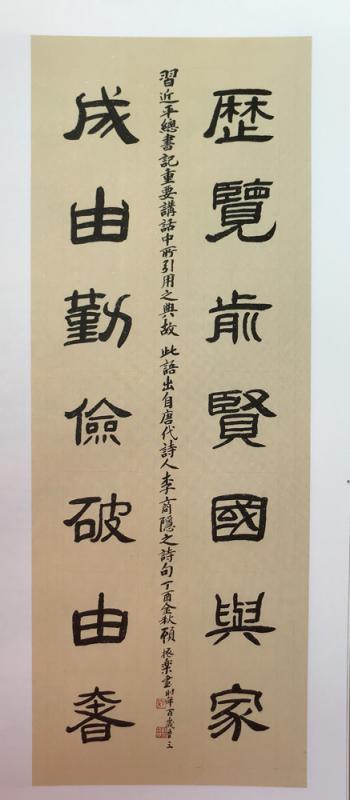 歷覽前賢國與家
成由勤儉破由奢
習近平總書記重要講話中所引用之典故 此語出自唐代詩人李商隱之詩句 丁酉金秋 顧振樂書 時年百歲晉三